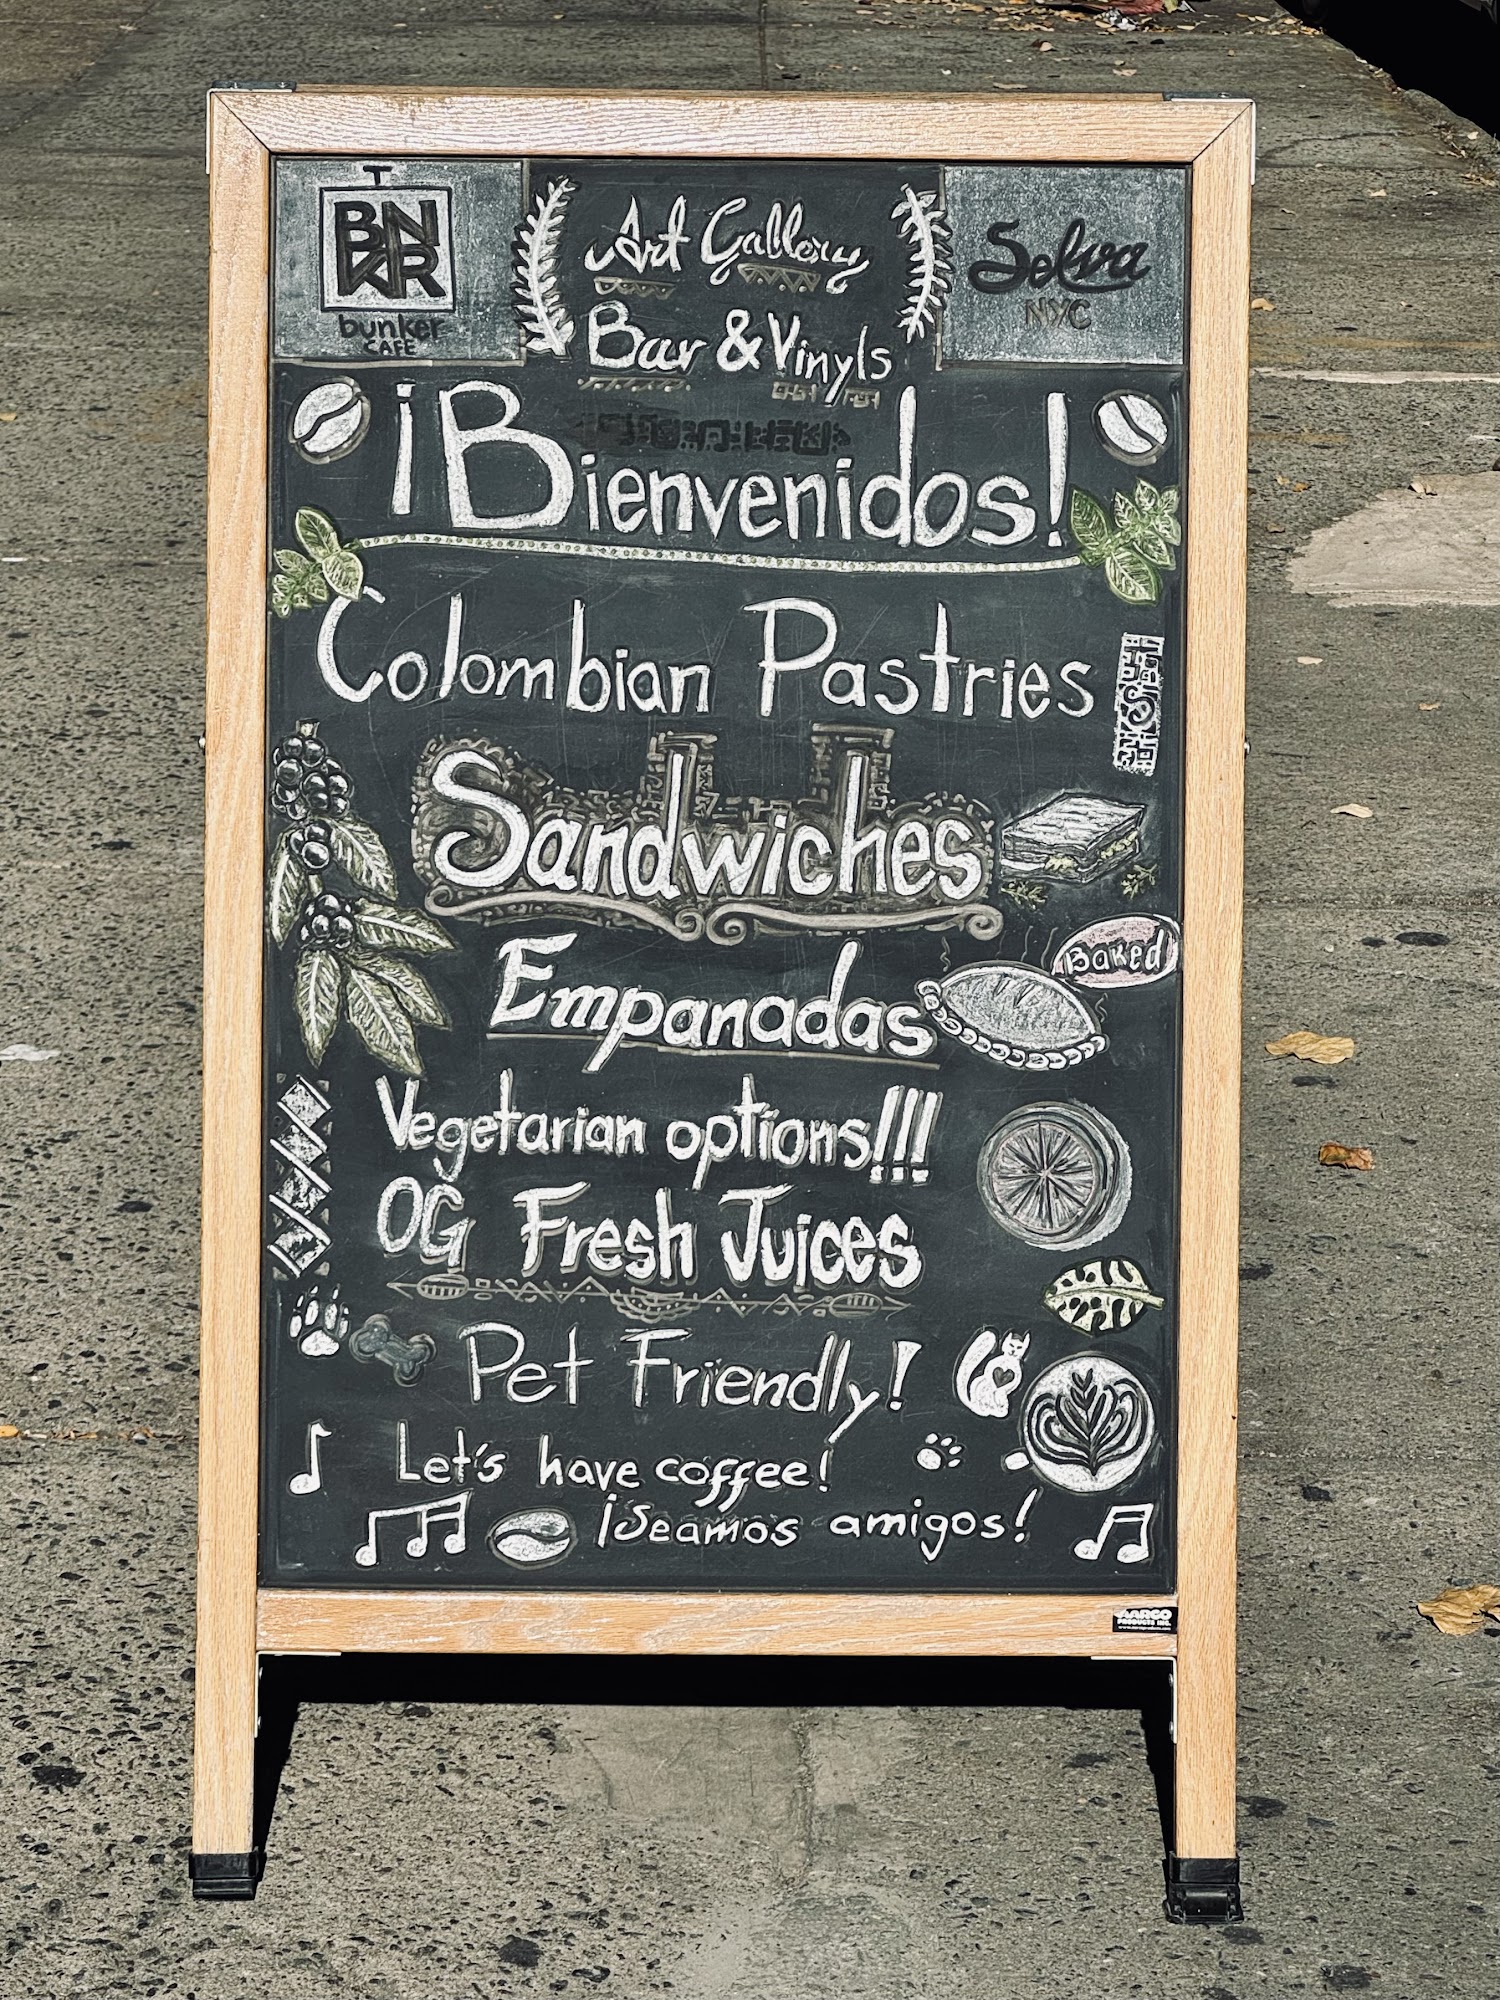 BNKR
bunker
CAFE
Art Gallery
Bar & Vinyls
Selva
NYC
¡Bienvenidos!
Colombian Pastries
Sandwiches
Empanadas
Baked
Vegetarian options!!!
OG Fresh Juices
Pet Friendly!
Let's have coffee!
¡Seamos amigos!
AARCO
PRODUCTS INC.